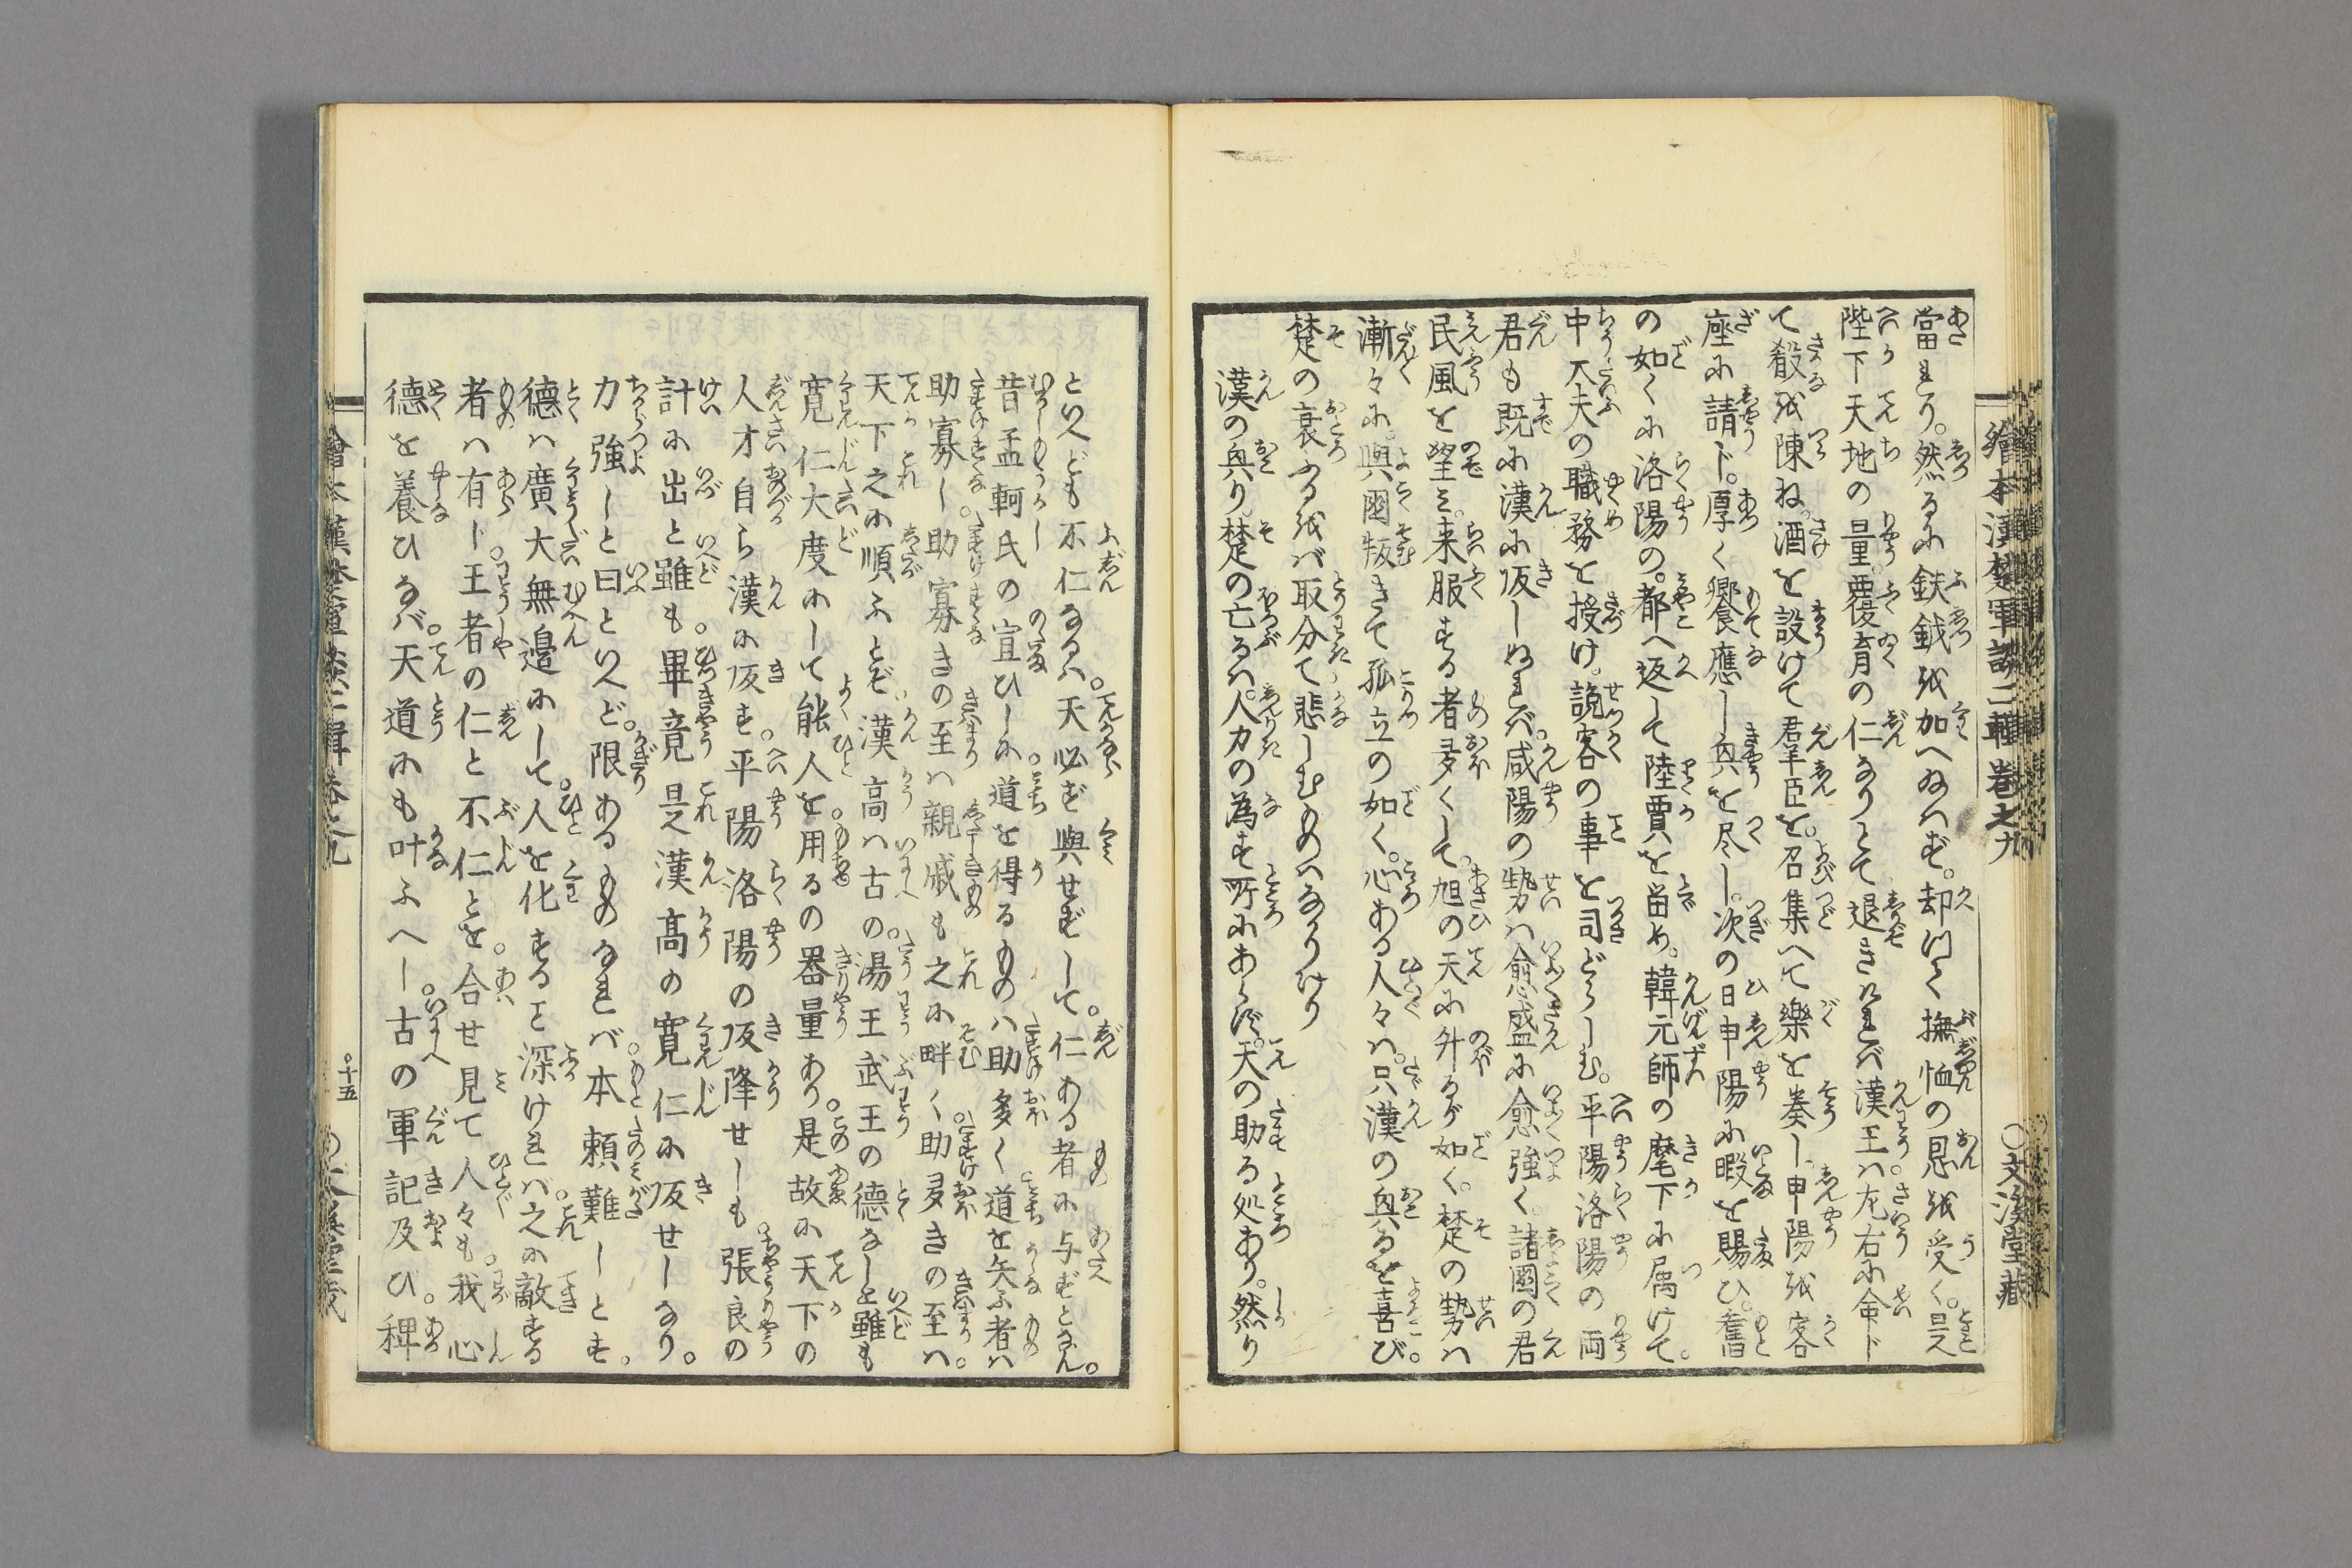 繪本漢楚軍談二輯卷之九
〇文溪堂藏
當れり。然るに鈇鉞を加へ給はず。却つて撫恤の恩を受く。是
陛下天地の量覆育の仁なりとて退きければ漢王ハ左右に命じ
て殽を陳ね。酒を設けて羣臣を。召集へて樂を奏し。申陽を客
座に請ド。厚く饗應し興を尽し。次の日申陽に暇を賜ひ。舊
の如くに洛陽の。都へ返して陸賈を留め。韓元師の麾下に属けて。
中大夫の職務を授け。説客の事を司どらしむ。平陽洛陽の両
君も既に漢に皈しぬれバ。咸陽の勢ハ愈盛に愈強く。諸國の君
民風を望ミ。来服する者多くして。旭の天に升るが如く。楚の勢ハ
漸々に。與國叛きて孤立の如く。心ある人々ハ。只漢の興るを喜び。
楚の衰ふるをバ取分て悲しむものハなかりけり
漢の興り。楚の亡るハ。人力の為す所にあらず。天の助る処あり。然り
といへども不仁なるハ。天必ず與せずして。仁ある者に与ずとなん。
昔孟軻氏の宣ひしに。道を得るものハ助多く道を失ふ者ハ
助寡し。助寡きの至ハ親戚も之に畔く助多きの至ハ。
天下之に順ふとぞ漢高ハ古の。湯王武王の德なしと雖も
寛仁大度にして能人を用るの器量あり。是故に天下の
人才自ら漢に皈す。平陽洛陽の皈降せしも。張良の
計に出と雖も。畢竟是漢高の寛仁に皈せしなり。
力強しと曰といへど。限あるものなれバ。本頼難しとす。
德ハ廣大無邉にして。人を化すること深ければ。之に敵する
者ハ有じ。王者の仁と不仁とを。合せ見て人々も。我心
德を養ひなバ。天道にも叶ふべし。古の軍記及ひ。稗
繪本漢楚軍談二輯卷之九
〇十五